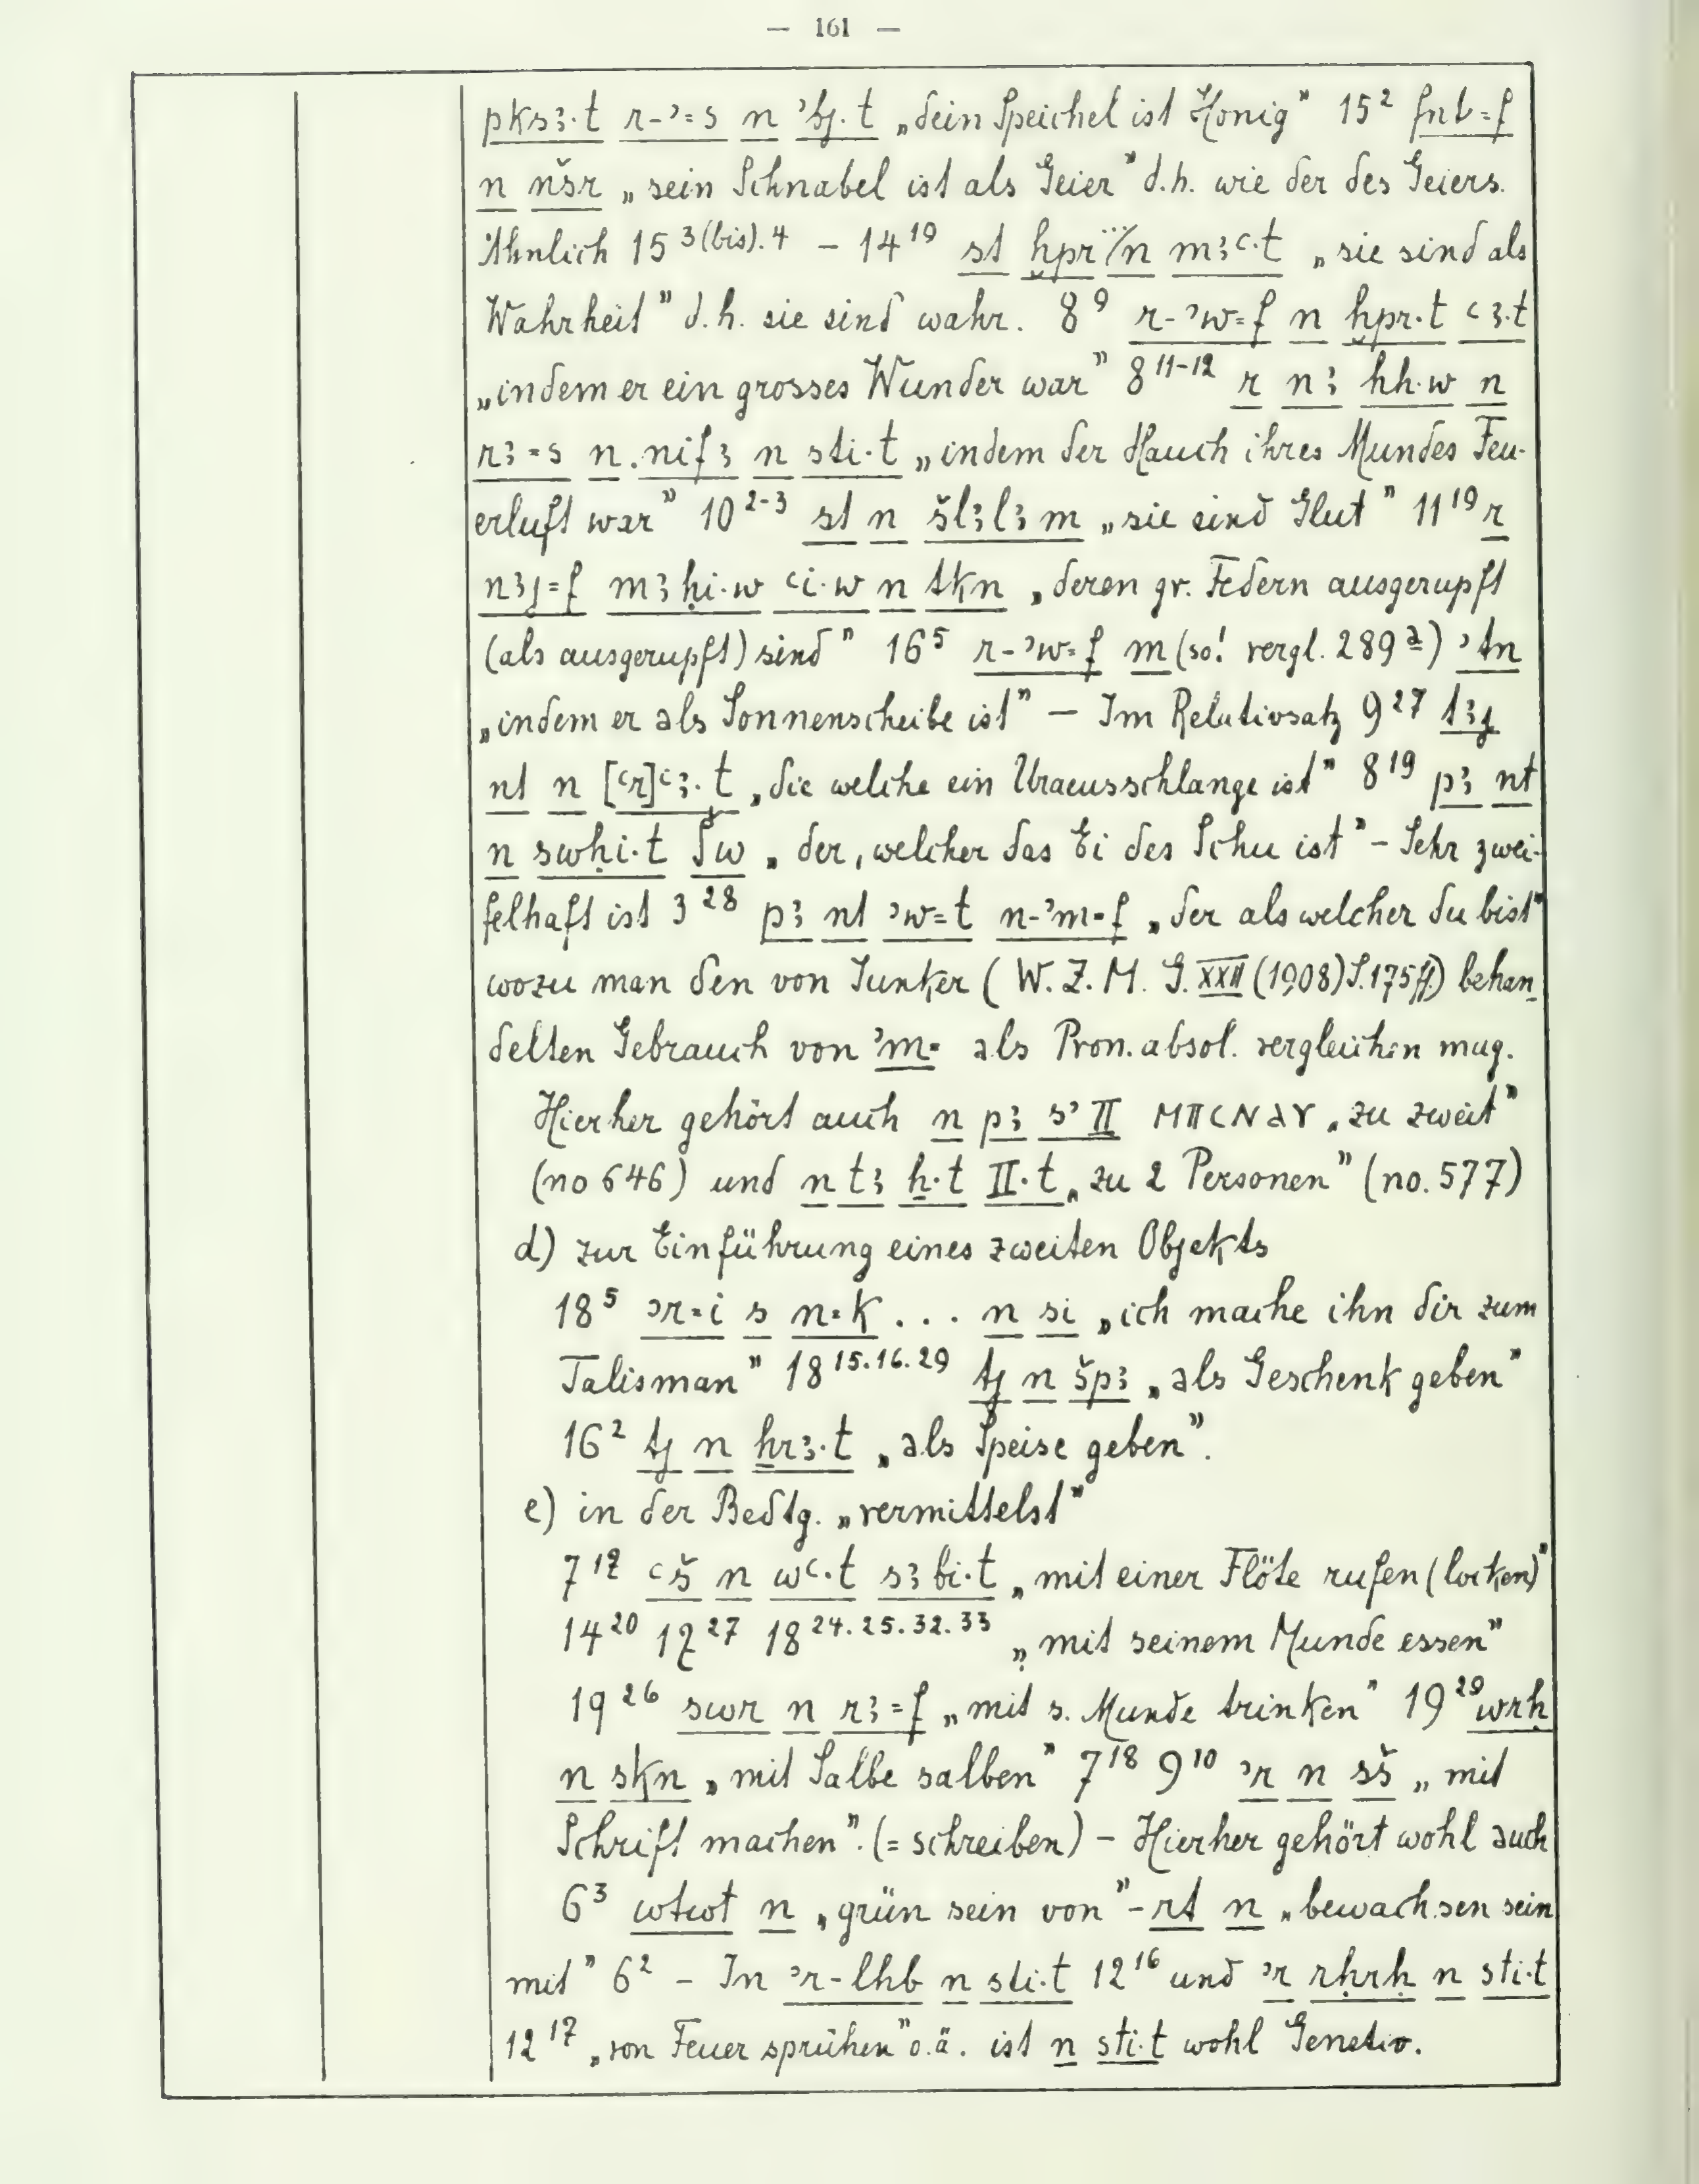 — 161 —
pksꜣ·t r-ʾ=s n ʾbj·t „dein Speichel ist Honig" 15² fnt=f
n nšr „sein Schnabel ist als Geier" d.h. wie der des Geiers.
Ähnlich 15 ³⁽ᵇⁱˢ⁾·⁴ – 14¹⁹ st ḫpr n mꜣꜥ·t „sie sind als
Wahrheit" d.h. sie sind wahr. 8⁹ r-ʾw=f n ḫpr·t ꜥꜣ·t
„indem er ein grosses Wunder war" 8¹¹⁻¹² r nꜣ hh·w n
rꜣ=s n nifꜣ n sti·t „indem der Hauch ihres Mundes Feu-
erluft war" 10²⁻³ st n šlꜣlꜣm „sie sind Glut" 11¹⁹ r
nꜣj=f mꜣḥi·w ꜥi·w n tkn „deren gr. Federn ausgerupft
(als ausgerupft) sind" 16⁵ r-ʾw=f m (so! vergl. 289a) ʾtn
„indem er als Sonnenscheibe ist" – Im Relativsatz 9²⁷ tꜣj
nt n [ꜥr]ꜥꜣ·t „die welche ein Uraeusschlange ist" 8¹⁹ pꜣ nt
n swḥi·t Šw „der, welcher das Ei des Schu ist" – Sehr zwei-
felhaft ist 3²⁸ pꜣ nt ʾw=t n-ʾm=f „der als welcher du bist"
wozu man den von Junker (W. Z. M. G. XXII (1908) S. 175 ff) behan-
delten Gebrauch von ʾm= als Pron. absol. vergleichen mag.
Hierher gehört auch n pꜣ sʾ II ⲙⲡⲥⲛⲁⲩ „zu zweit"
(no 646) und n tꜣ ẖ·t II·t „zu 2 Personen" (no. 577)
d) zur Einführung eines zweiten Objekts
18⁵ ʾr=i s n=k ... n si „ich mache ihn dir zum
Talisman" 18¹⁵·¹⁶·²⁹ tj n špꜣ „als Geschenk geben"
16² tj n ẖrꜣ·t „als Speise geben".
e) in der Bedtg. „vermittelst"
7¹² ꜥš n wꜥ·t sꜣbi·t „mit einer Flöte rufen (locken)"
14²⁰ 12²⁷ 18²⁴·²⁵·³²·³³ „mit seinem Munde essen"
19²⁶ swr n rꜣ=f „mit s. Munde trinken" 19²⁹ wrḥ
n skn „mit Salbe salben" 7¹⁸ 9¹⁰ ʾr n sš „mit
Schrift machen". (= schreiben) – Hierher gehört wohl auch
6³ wtwt n „grün sein von" – rt n „bewachsen sein
mit" 6² – In ʾr-lhb n sti·t 12¹⁶ und ʾr rḥrḥ n sti·t
12¹⁷ „von Feuer sprühen" o.ä. ist n sti·t wohl Genetiv.